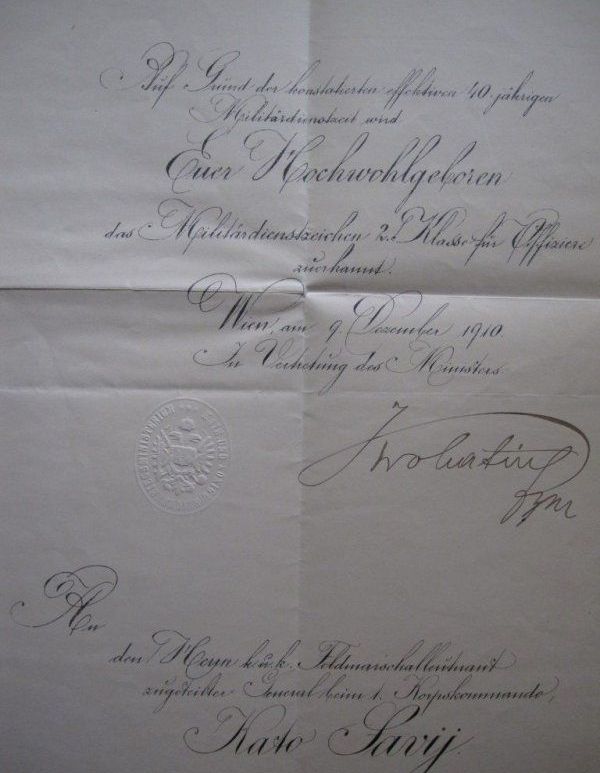 Auf Grund der konstatierten effektiven 40 jährigen
Militärdienstzeit wird
Euer Hochwohlgeboren
das Militärdienstzeichen 2. Klasse für Offiziere
zuerkannt.
Wien, am 9. Dezember 1910.
In Vertretung des Ministers
Krobatin
An
den Herrn k. u. k. Feldmarschalleutnant
zugeteilter General beim 1. Korpskommando,
Kasto Savij.